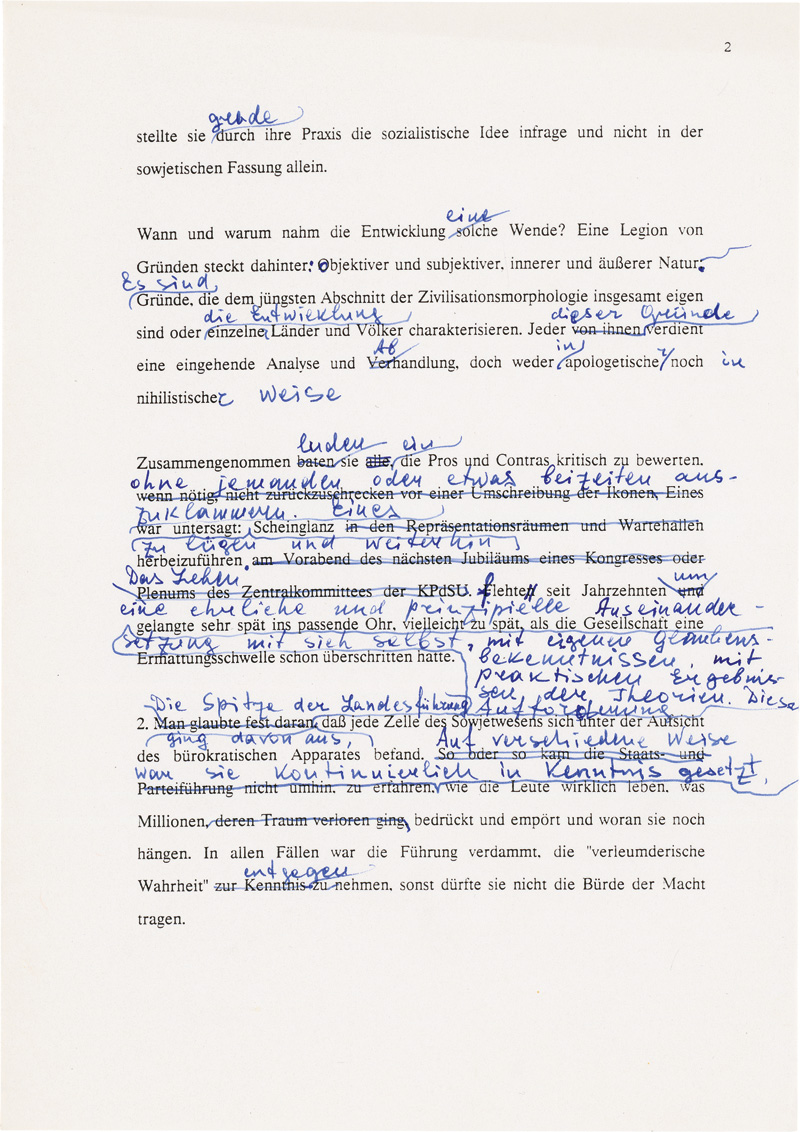 2
gerade
stellte sie durch ihre Praxis die sozialistische Idee infrage und nicht in der
sowjetischen Fassung allein.
eine
Wann und warum nahm die Entwicklung solche Wende? Eine Legion von
Gründen steckt dahinter: Objektiver und subjektiver, innerer und äußerer Natur.
Es sind
Gründe, die dem jüngsten Abschnitt der Zivilisationsmorphologie insgesamt eigen
die Entwicklung dieser Gründe
sind oder einzelne Länder und Völker charakterisieren. Jeder von ihnen verdient
Ab in
eine eingehende Analyse und Verhandlung, doch weder apologetische noch in
nihilistischer Weise
luden ein
Zusammengenommen baten sie alle, die Pros und Contras kritisch zu bewerten,
ohne jemanden oder etwas beizeiten aus-
wenn nötig, nicht zurückzuschrecken vor einer Umschreibung der Ikonen. Eines
zuklammern. Eines
war untersagt: Scheinglanz in den Repräsentationsräumen und Wartehallen
zu lügen und weiterhin
herbeizuführen, am Vorabend des nächsten Jubiläums eines Kongresses oder
Das Leben
Plenums des Zentralkommittees der KPdSU. flehte seit Jahrzehnten und
um
eine ehrliche und prinzipielle Auseinander-
gelangte sehr spät ins passende Ohr, vielleicht zu spät, als die Gesellschaft eine
setzung mit sich selbst, mit eigenen Glaubens-
Ermattungsschwelle schon überschritten hatte.
bekenntnissen, mit
praktischen Ergebnis-
sen der Theorien. Diese
Aufforderung
Die Spitze der Landesführung
2. Man glaubte fest daran, daß jede Zelle des Sowjetwesens sich unter der Aufsicht
ging davon aus, Auf verschiedene Weise
des bürokratischen Apparates befand. So oder so kam die Staats- und
war sie kontinuierlich in Kenntnis gesetzt,
Parteiführung nicht umhin, zu erfahren, wie die Leute wirklich leben, was
Millionen, deren Traum verloren ging, bedrückt und empört und woran sie noch
hängen. In allen Fällen war die Führung verdammt, die "verleumderische
entgegen
Wahrheit" zur Kenntnis zu nehmen, sonst dürfte sie nicht die Bürde der Macht
tragen.